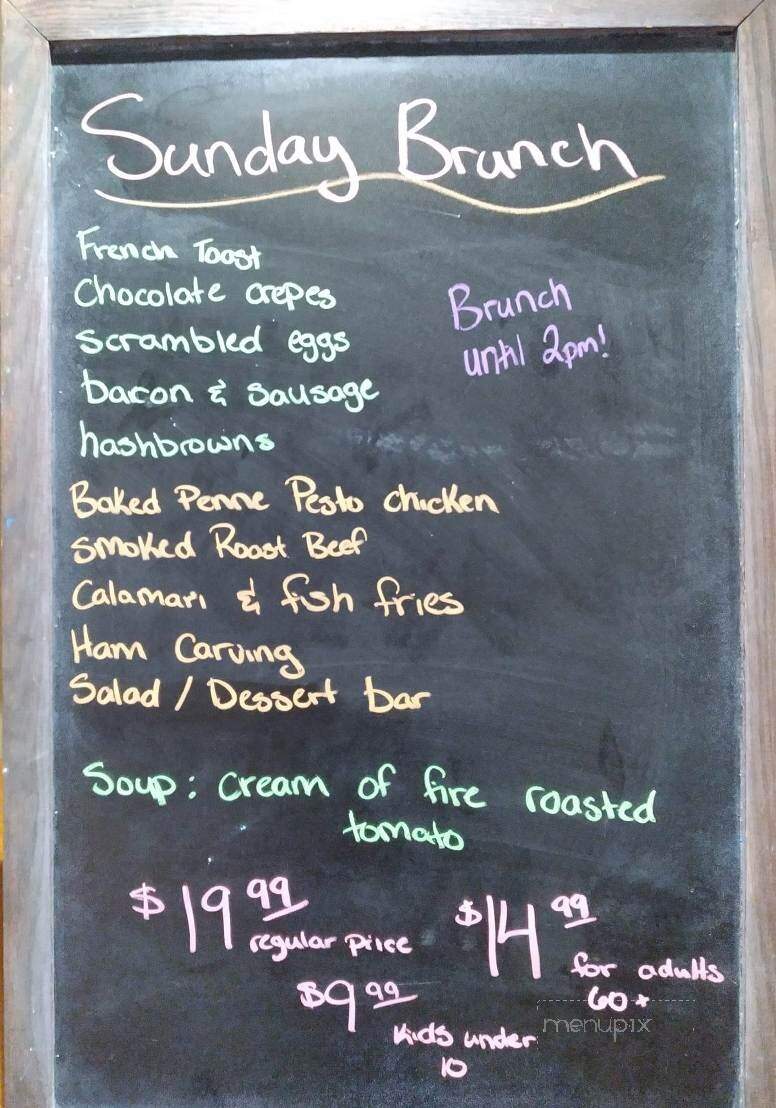 Sunday Brunch
French Toast
Chocolate crepes
scrambled eggs
bacon & sausage
hashbrowns
Brunch
until 2pm!
Baked Penne Pesto chicken
smoked Roast Beef
Calamari & fish fries
Ham Carving
Salad / Dessert bar
Soup: cream of fire roasted
tomato
$19.99
regular price
$14.99
for adults
60+
$9.99
kids under
10
menupix